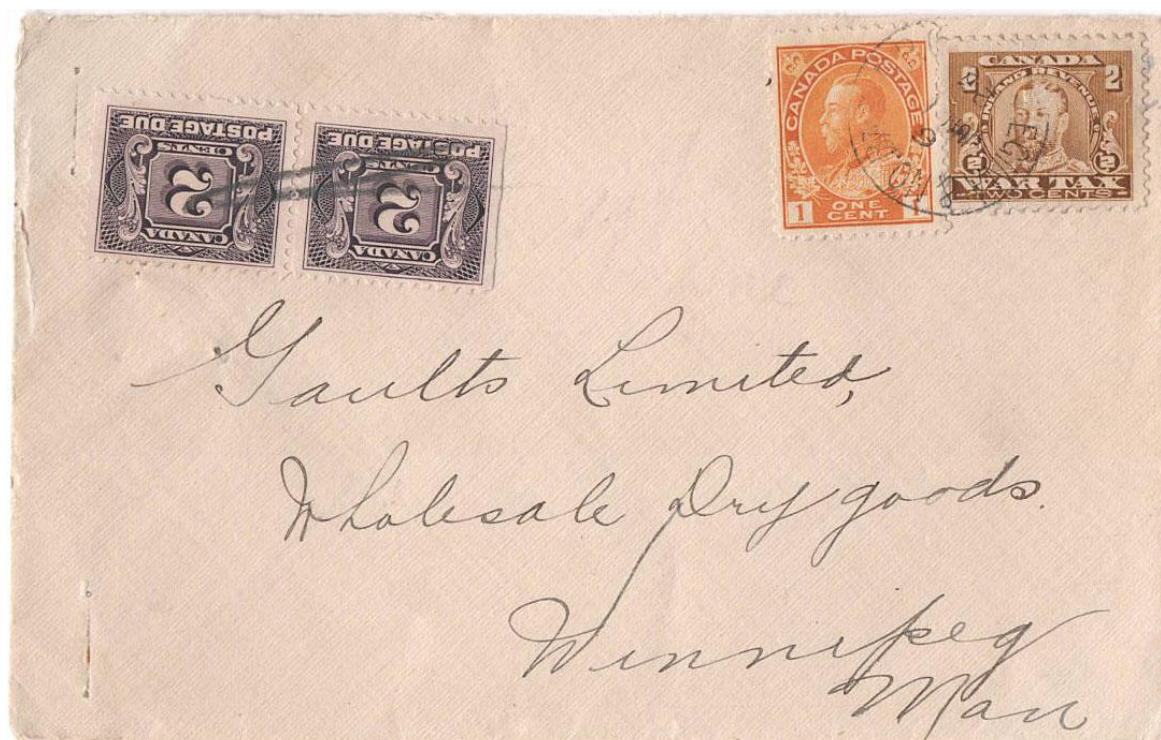 POSTAGE DUE
CENTS
2
CANADA
POSTAGE DUE
CENTS
2
CANADA
CANADA POSTAGE
1 ONE 1
CENT
2 CANADA 2
INLAND REVENUE
2 2
WAR TAX
TWO CENTS
Gaults Limited,
Wholesale Dry goods.
Winnipeg
Man